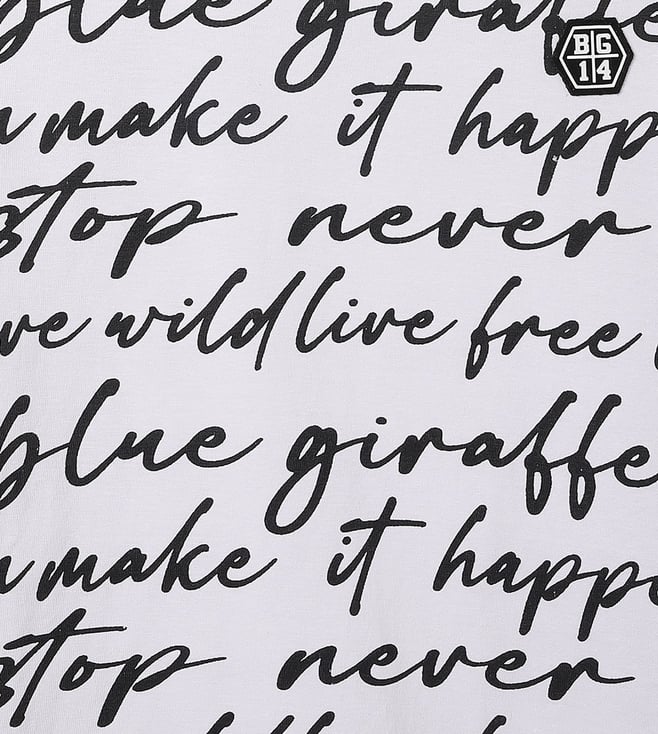 blue giraffe
BG
14
make it happ
stop never
ve wild live free
blue giraffe
make it happ
stop never